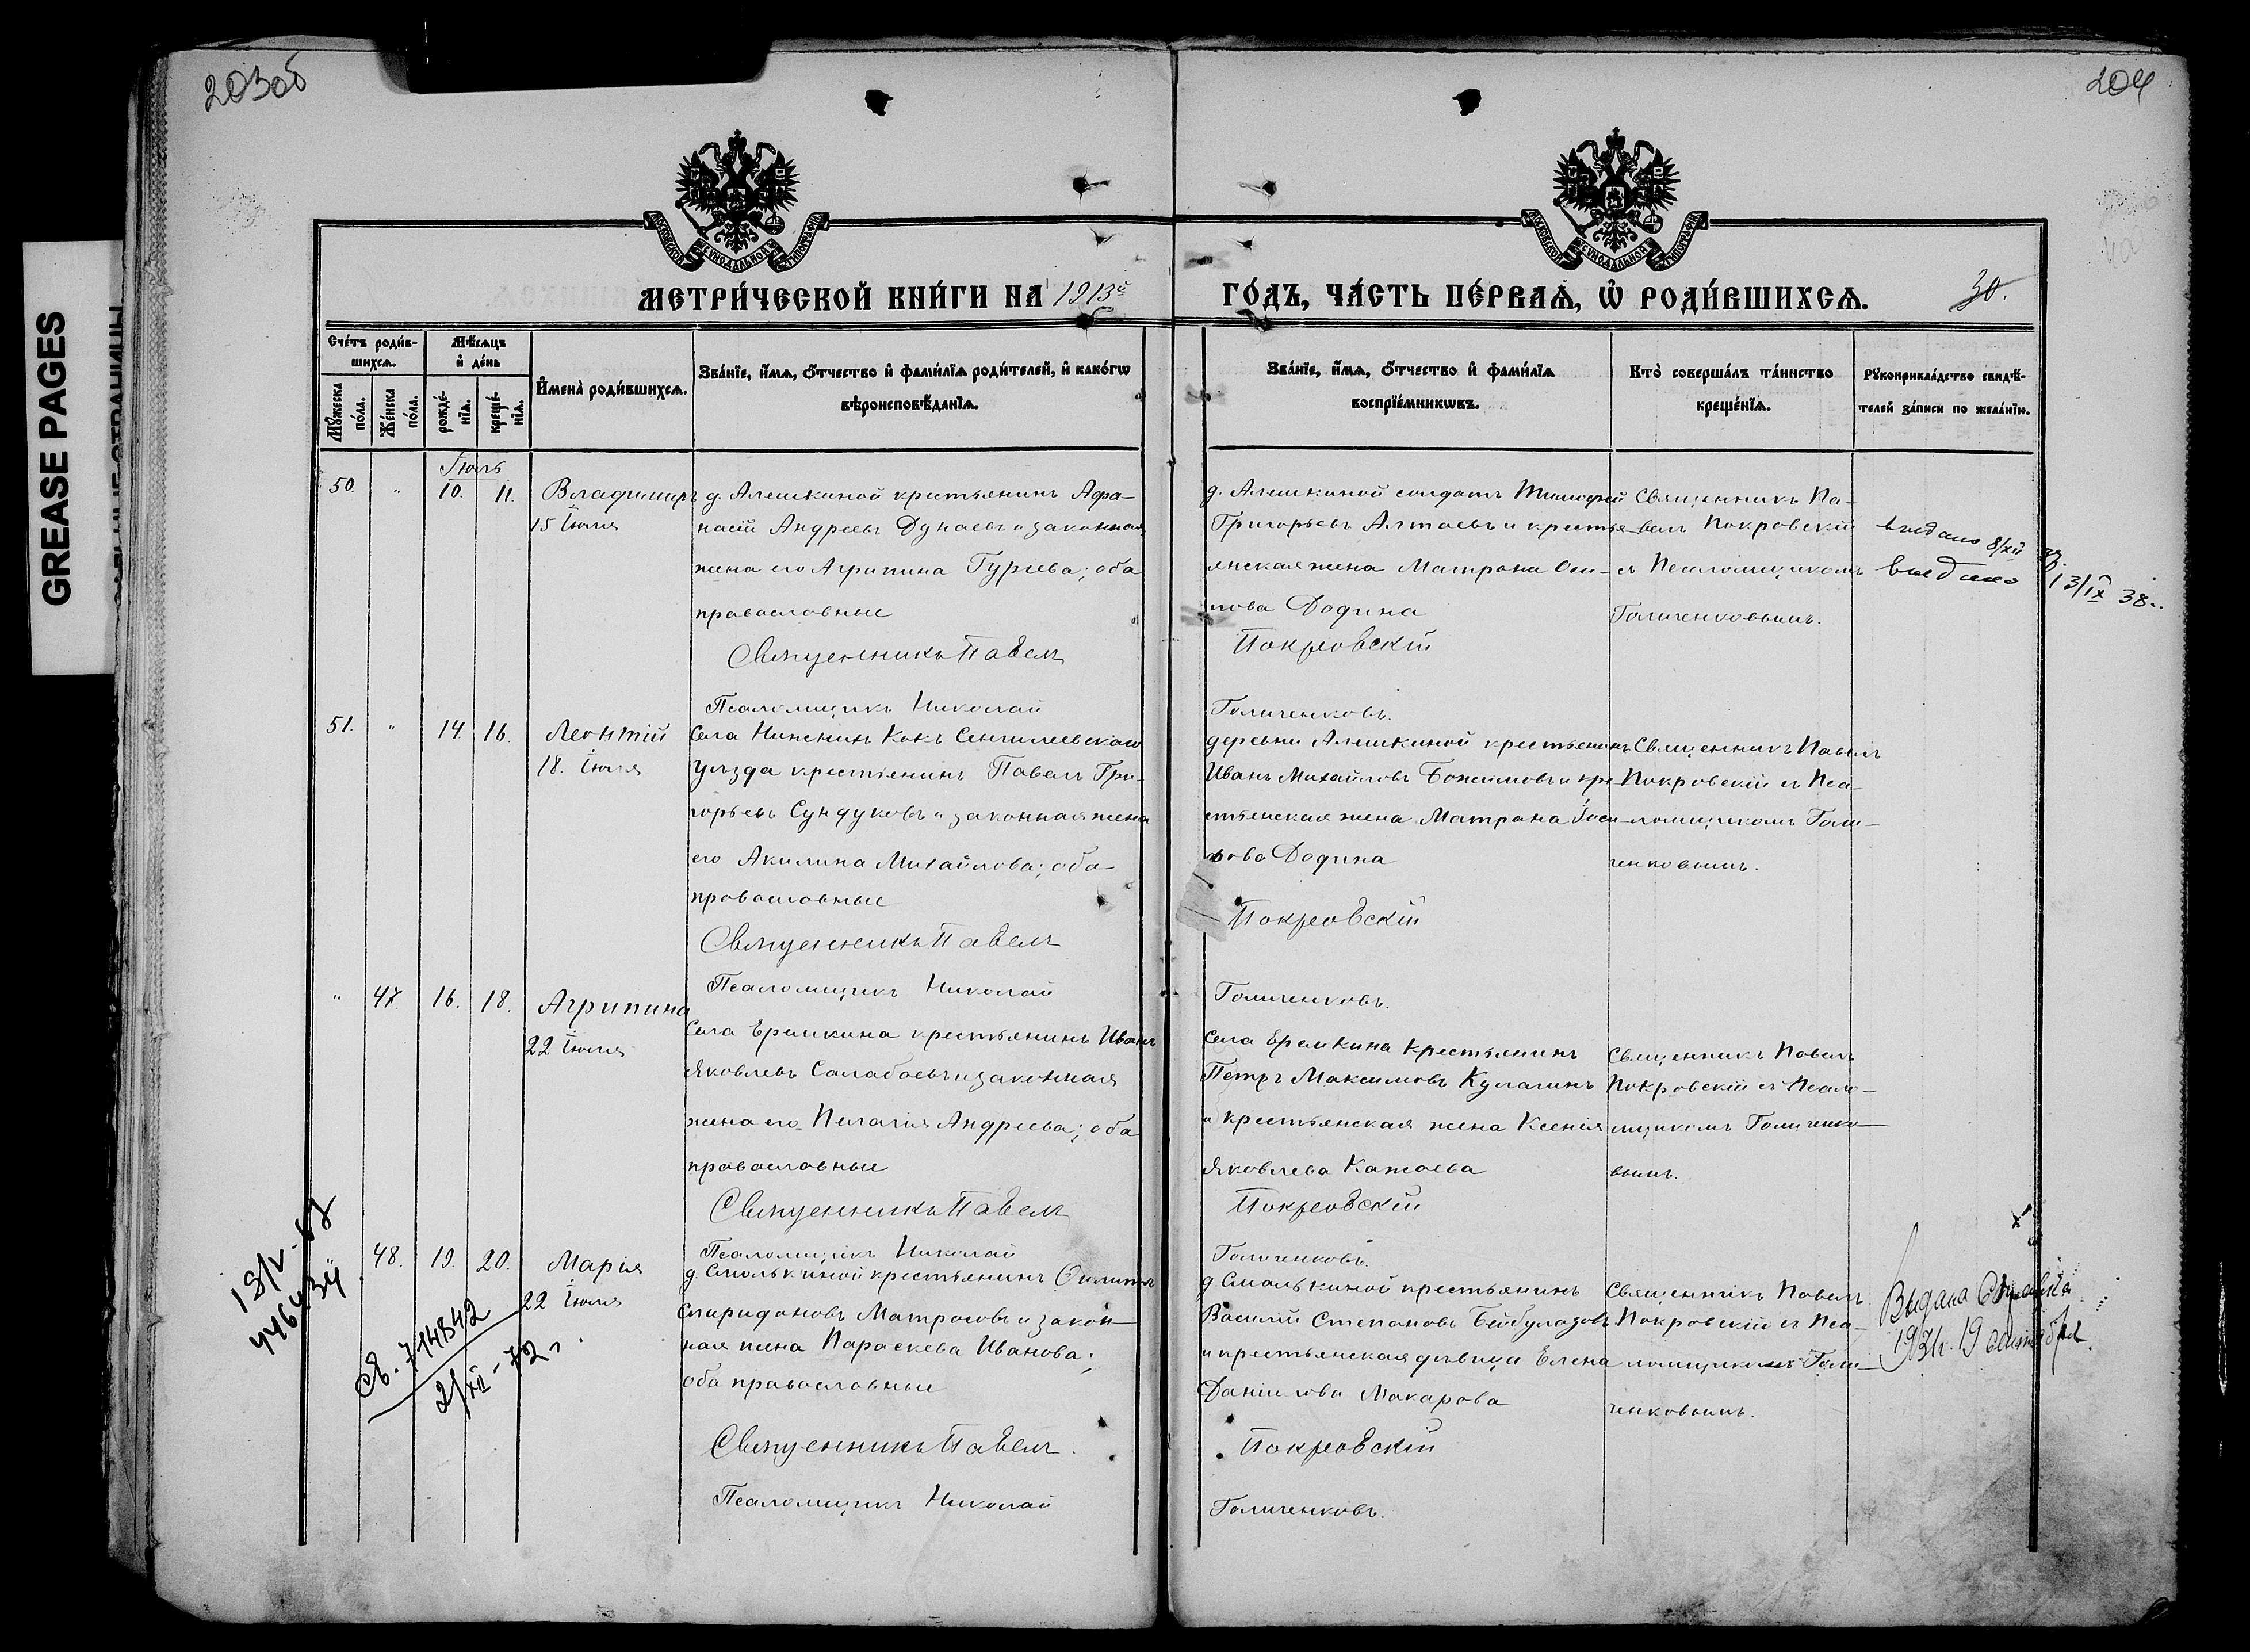 203об
204
GREASE PAGES
МОСКОВСКОЙ СѴНОДАЛЬНОЙ ТИПОГРАФІИ
МОСКОВСКОЙ СѴНОДАЛЬНОЙ ТИПОГРАФІИ
МЕТРИ́ЧЕСКОЙ КНИ́ГИ НА 1913й
ГО́ДЪ, ЧА́СТЬ ПЕ́РВАѦ, Ѡ РОДИ́ВШИХСѦ.
30.
Сче́тъ роди́в-
шихсѧ.
Мꙋ́жеска по́ла.
Же́нска по́ла.
Мѣ́сѧцъ
и҆ де́нь
рожде́-
нїѧ.
креще́-
нїѧ.
И҆мена̀ роди́вшихсѧ.
Зва́нїе, и҆́мѧ, ѻ҆́тчество и҆ фами́лїѧ роди́телей, и҆ како́гѡ
вѣроисповѣ́данїѧ.
Зва́нїе, и҆́мѧ, ѻ҆́тчество и҆ фами́лїѧ
воспрїе́мникѡвъ.
Кто̀ соверша́лъ та́инство
креще́нїѧ.
Рꙋкоприкла́дство свидѣ́-
телей за́писи по жела́нїю.
Іюль
50. " 10. 11. Владимиръ
15 Іюля
д. Алешкиной крестьянинъ Афа-
насій Андреевъ Дунаевъ и законная
жена его Агрипина Гурьева; оба
православные
Священникъ Павелъ
Псаломщикъ Николай
д. Алешкиной солдатъ Тимофей
Григорьевъ Алтаевъ и крестья-
янская жена Матрона Оси-
пова Додина
Покровскій
Голиченковъ.
Священникъ Па-
велъ Покровскій
съ Псаломщикомъ
Голиченковымъ.
выдано 8/XII
выдано 13/IX 38.
51. " 14. 16. Леонтій
18. Іюля
Села Нижнихъ Кокъ Сенгилеевскаго
уѣзда крестьянинъ Павелъ Гри-
горьевъ Сундуковъ и законная жена
его Акилина Михайлова; оба
православные
Священникъ Павелъ
Псаломщикъ Николай
деревни Алешкиной крестьянинъ
Иванъ Михайловъ и кре-
стьянская жена Матрона Іоси-
пова Додина
Покровскій
Голиченковъ.
Священникъ Павелъ
Покровскій съ Пса-
ломщикомъ Голи-
ченковымъ.
" 47. 16. 18. Агрипина
22 Іюля
Села Еремкина крестьянинъ Иванъ
Яковлевъ Салабаевъ и законная
жена его Пелагія Андреева; оба
православные
Священникъ Павелъ
Псаломщикъ Николай
Села Еремкина крестьянинъ
Петръ Максимовъ Кулагинъ
и крестьянская жена Ксенія
Яковлева Кажаева
Покровскій
Голиченковъ.
Священникъ Павелъ
Покровскій съ Псало-
мщикомъ Голиченко-
вымъ.
" 48. 19. 20. Марія
22 Іюля
д. Смолькиной крестьянинъ Филиппъ
Спиридоновъ Матросовъ и закон-
ная жена Параскева Иванова;
оба православные
Священникъ Павелъ.
Псаломщикъ Николай
д. Смолькиной крестьянинъ
Василій Степановъ Бейбулатовъ
и крестьянская дѣвица Елена
Даніилова Макарова
Покровскій
Голиченковъ.
Священникъ Павелъ
Покровскій съ Пса-
ломщикомъ Голи-
ченковымъ.
Выдана справка
19 сентября.
св. 714842
2/XII-72